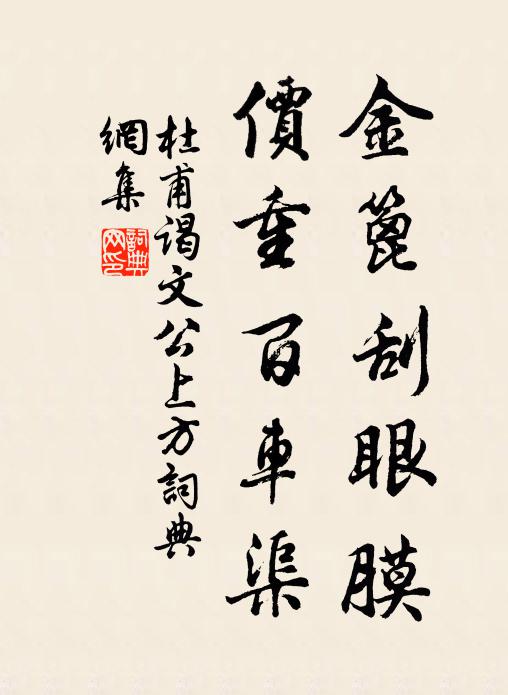 金篦刮眼膜
價重百車渠
杜甫謁文公上方詞典
網集
詞典網印